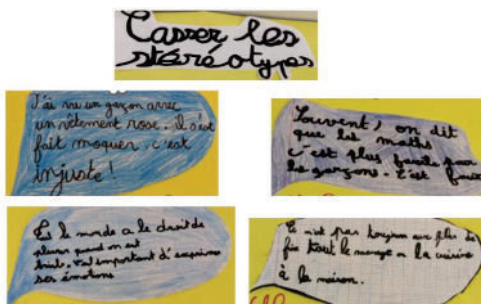 Casser les
stéréotypes
J'ai vu un garçon avec
un vêtement rose. il s'est
fait moquer. c'est
injuste!
Souvent, on dit
que les maths
c'est plus facile pour
les garçons. C'est faux
le monde a le droit de
pleurer quand on est
triste. important d'exprimer
ses émotions
Ce n'est pas toujours aux filles de
faire tout le ménage ou la cuisine
à la maison.